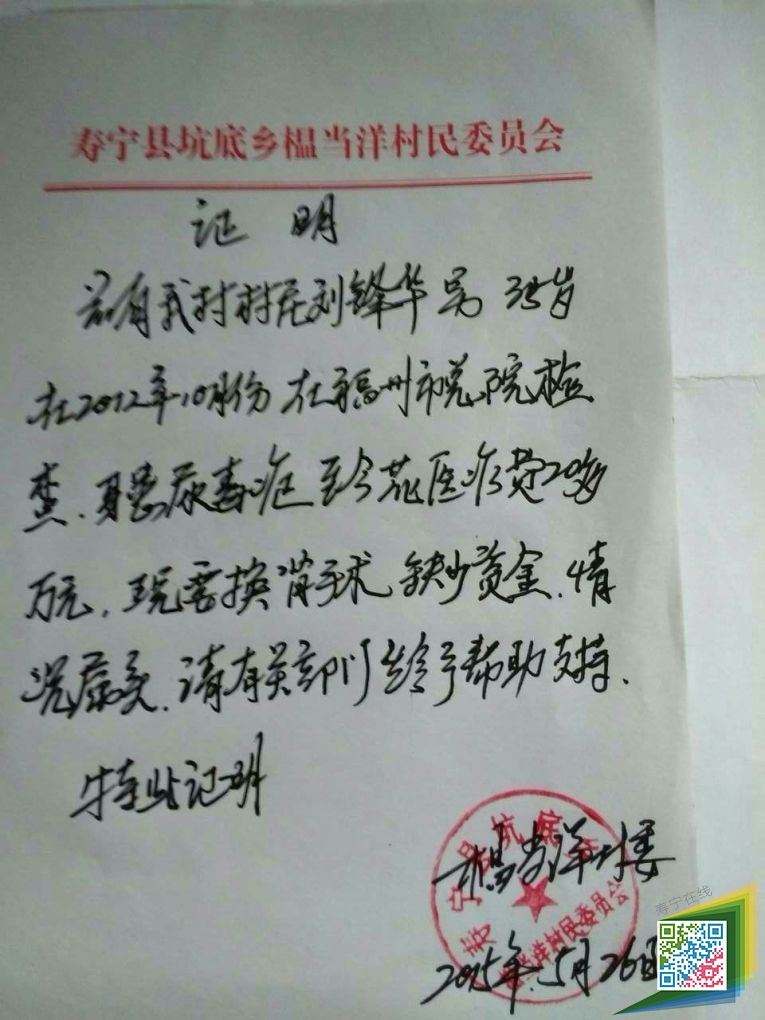 寿宁县坑底乡榅当洋村民委员会
证 明
兹有我村村民刘锋华 男 35岁
在2012年10月份在福州市总院检
查、身患尿毒症至今花医疗费20多
万元，现要换肾手术 缺少资金、情
况属实、请有关部门给予帮助支持、
特此证明
榅当洋村委
2015年5月26日
寿宁在线